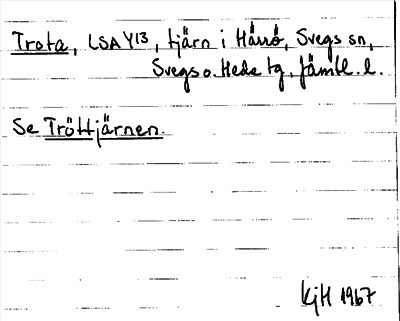 Trota, LSA Y13, tjärn i Håssö, Svegs sn,
Svegs o. Hede tg, Jämtl. l.
Se Tröttjärnen.
KjH 1967